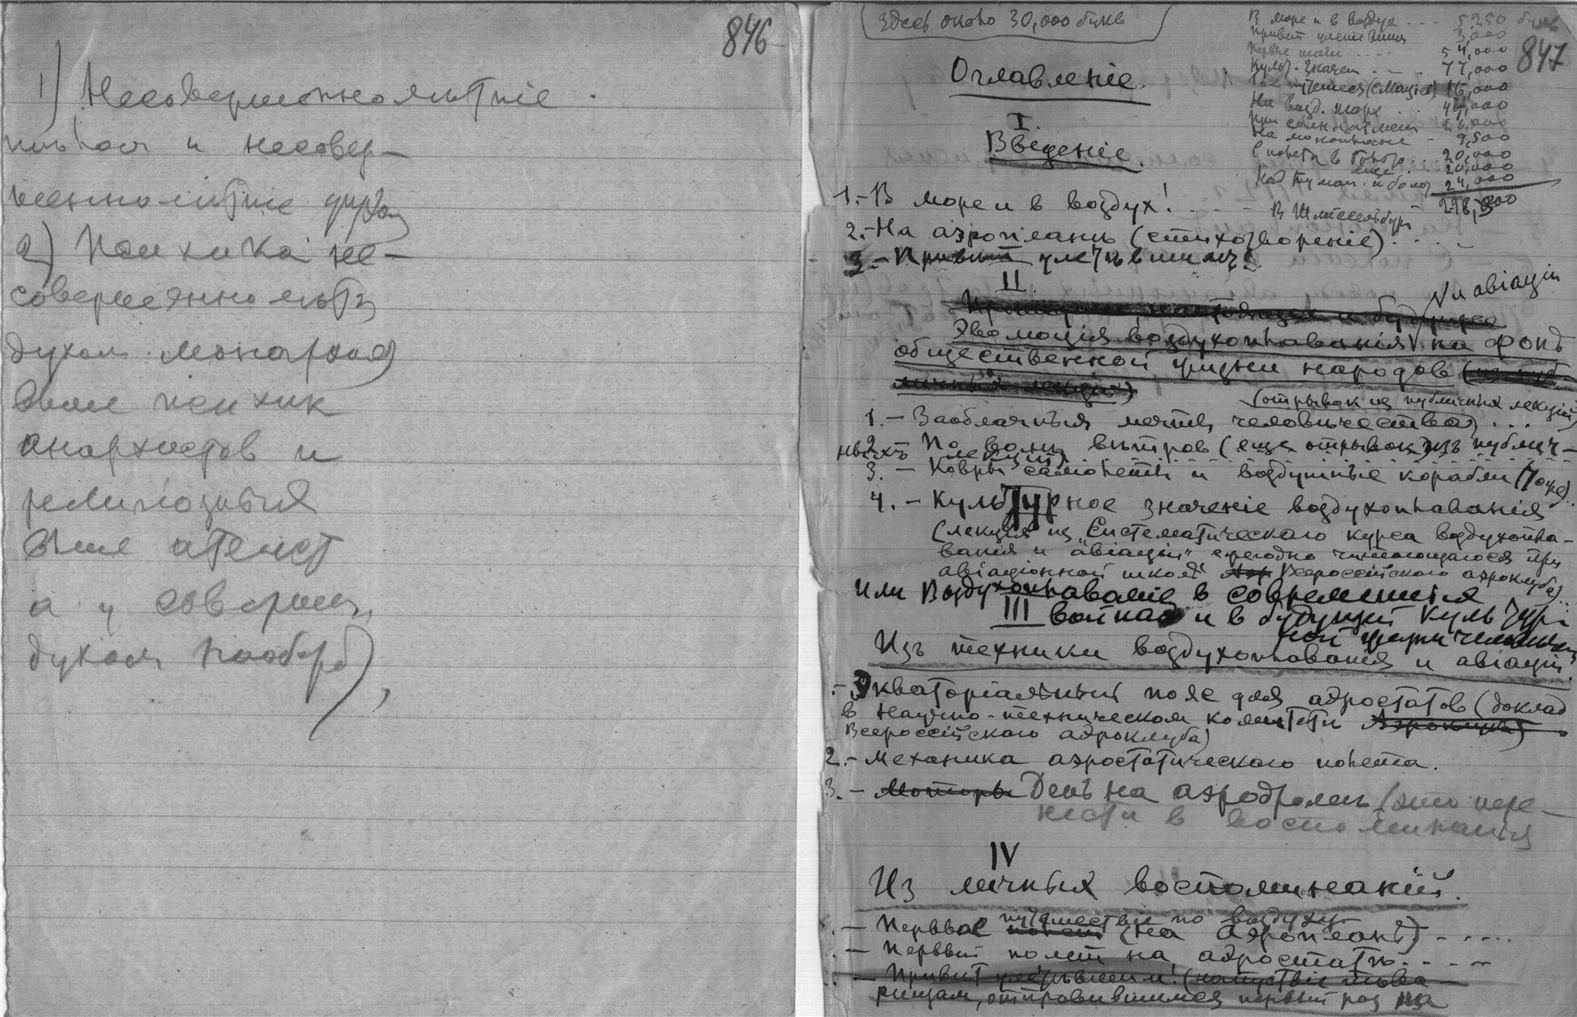 846
1) Несовершеннолѣтніе
тѣлом и несовер-
шеннолѣтніе духом
2) Психика не-
совершеннолѣтн
духом монархия
выше психик
анархистов и
религіозныя
выше атеист
а у соверш.
духом наоборот),
(Здесь около 30,000 букв
847
В море и в воздух ... 5250 букв
Привѣт улетѣвшим 3,000
54,000
Культ. значен. 77,000
16,000
На возд. шаре
9,500
20,000
20,000
24,000
В Шлиссельбург
Оглавленіе.
I.
Введеніе.
1.- В море и в воздух! ....
2.- На аэропланѣ (стихотвореніе) ....
3.- Привѣт улетѣвшим!
II
и авіаціи
Прошедшее, настоящее и будущее
Эволюція воздухоплаванія на фонѣ
общественной жизни народов
(отрывок из публичных лекцій)
1.- Заоблачныя мечты человѣчества) ...
2. По волѣ вѣтров (еще отрывок из публич-
ныхъ лекцій)
3. - Ковры самолеты и воздушные корабли (Тоже)
4. - Культурное значеніе воздухоплаванія
(лекція из "Систематического курса воздухопла-
ванія и авіаціи" ежегодно читающагося при
авіаціонной школѣ Всероссійского аэроклуба)
или Воздухоплаваніе в современной
войнѣ и в будущей культур-
ной жизни человѣчества
III
Изъ техники воздухоплаванія и авіаціи.
- Экваторіальный пояс для аэростатов (доклад
в Научно-техническом комитетѣ Аэроклуба)
Всероссійского аэроклуба)
2.- Механика аэростатического полета.
3. - Моторы День на аэродромѣ (это пере-
нести в воспоминанія
IV
Из личных воспоминаній.
- Первое путешествіе по воздуху
полет (на аэропланѣ) .....
- Первый полет на аэростатѣ.....
- Привѣт улетѣвшим! (напутствіе това-
рищам, отправившимся первый раз на